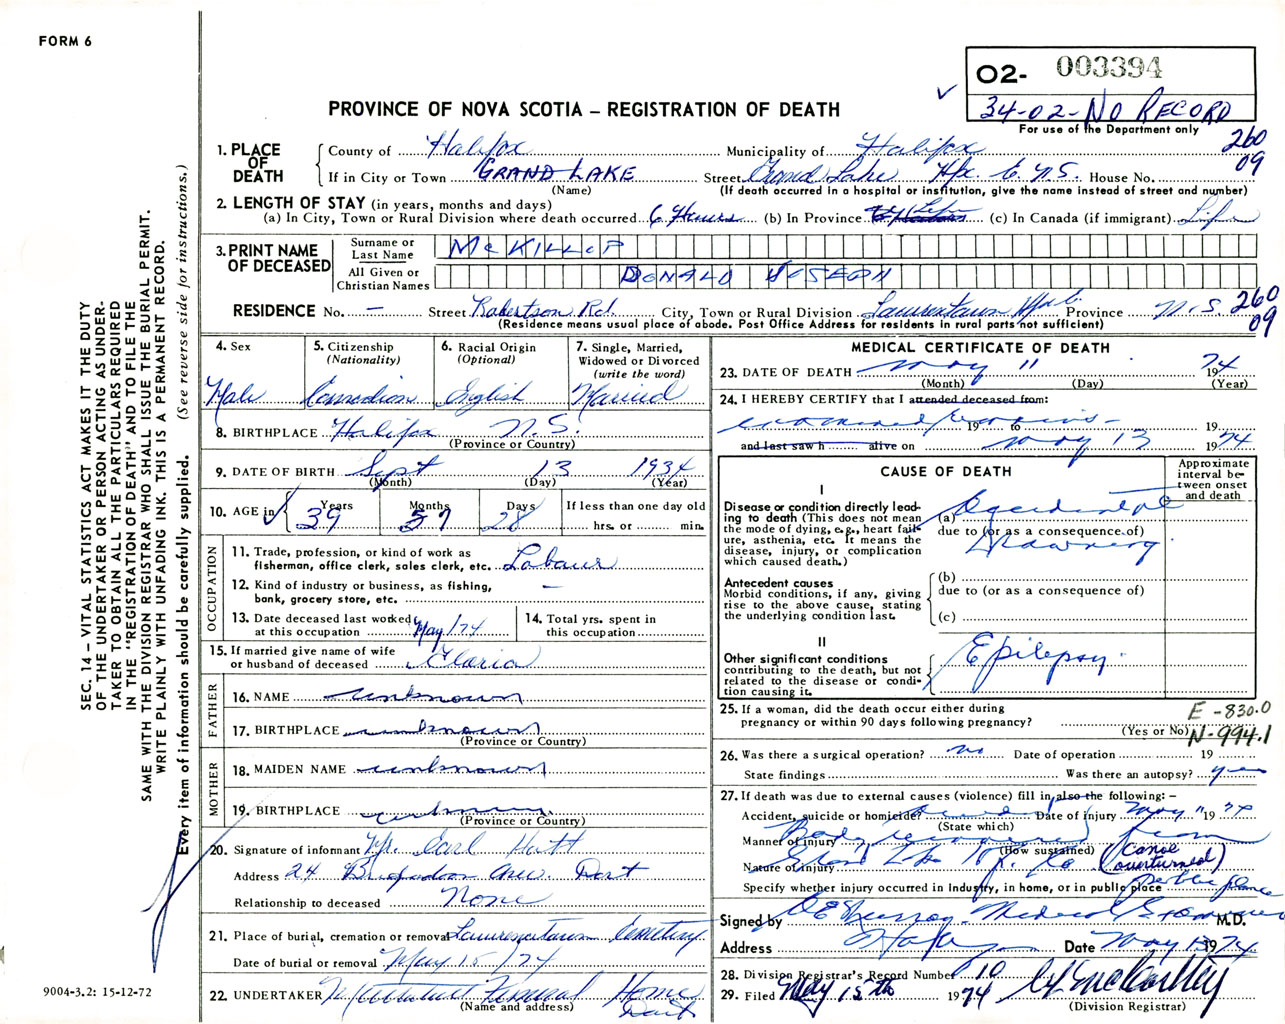 FORM 6
O2- 003394
34-02-NO RECORD
For use of the Department only
PROVINCE OF NOVA SCOTIA – REGISTRATION OF DEATH
260
09
1. PLACE OF DEATH
County of Halifax Municipality of Halifax
If in City or Town GRAND LAKE Street Grand Lake Hfx C. N.S. House No.
(Name) (If death occurred in a hospital or institution, give the name instead of street and number)
2. LENGTH OF STAY (in years, months and days)
(a) In City, Town or Rural Division where death occurred 6 Hours (b) In Province Life (c) In Canada (if immigrant) Life
3. PRINT NAME OF DECEASED
Surname or Last Name McKILLOP
All Given or Christian Names DONALD JOSEPH
RESIDENCE No. – Street Robertson Rd. City, Town or Rural Division Lawrencetown Province N.S. 260
09
(Residence means usual place of abode. Post Office Address for residents in rural parts not sufficient)
4. Sex
Male
5. Citizenship
(Nationality)
Canadian
6. Racial Origin
(Optional)
English
7. Single, Married,
Widowed or Divorced
(write the word)
Married
8. BIRTHPLACE Halifax N.S.
(Province or Country)
9. DATE OF BIRTH Sept 13 1934
(Month) (Day) (Year)
10. AGE in Years Months Days If less than one day old
39 7 28 hrs. or min.
OCCUPATION
11. Trade, profession, or kind of work as
fisherman, office clerk, sales clerk, etc. Labour
12. Kind of industry or business, as fishing,
bank, grocery store, etc. –
13. Date deceased last worked
at this occupation May/74
14. Total yrs. spent in
this occupation
15. If married give name of wife
or husband of deceased Gloria
FATHER
16. NAME unknown
17. BIRTHPLACE unknown
(Province or Country)
MOTHER
18. MAIDEN NAME unknown
19. BIRTHPLACE unknown
(Province or Country)
20. Signature of informant Mr. Earl Hatt
Address 24 Brigadoon Ave. Dart
Relationship to deceased None
21. Place of burial, cremation or removal Lawrencetown Cemetery
Date of burial or removal May 15/74
22. UNDERTAKER Funeral Home
Dart
(Name and address)
MEDICAL CERTIFICATE OF DEATH
23. DATE OF DEATH May 11 1974
(Month) (Day) (Year)
24. I HEREBY CERTIFY that I attended deceased from:
examined 19 to 19
and last saw h alive on May 13 1974
CAUSE OF DEATH
Approximate interval between onset and death
I
Disease or condition directly leading to death (This does not mean
the mode of dying, e.g., heart failure, asthenia, etc. It means the
disease, injury, or complication
which caused death.)
(a) Accidental
due to (or as a consequence of)
Drowning
Antecedent causes
Morbid conditions, if any, giving
rise to the above cause, stating
the underlying condition last.
(b)
due to (or as a consequence of)
(c)
II
Other significant conditions
contributing to the death, but not
related to the disease or condition causing it.
Epilepsy
25. If a woman, did the death occur either during
pregnancy or within 90 days following pregnancy?
(Yes or No)
E-830.0
N-994.1
26. Was there a surgical operation? no Date of operation 19
State findings Was there an autopsy? yes
27. If death was due to external causes (violence) fill in also the following: –
Accident, suicide or homicide? Accident Date of injury May 11 1974
(State which)
Manner of injury Body recovered from
(How sustained)
Nature of injury Grand Lake Hfx. Co (Canoe overturned)
Specify whether injury occurred in Industry, in home, or in public place public place
Signed by Medical Examiner M.D.
Address Halifax Date May 13 1974
28. Division Registrar's Record Number 10
29. Filed May 15th 1974
(Division Registrar)
SEC. 14 – VITAL STATISTICS ACT MAKES IT THE DUTY
OF THE UNDERTAKER OR PERSON ACTING AS UNDERTAKER TO OBTAIN ALL THE PARTICULARS REQUIRED
IN THE "REGISTRATION OF DEATH" AND TO FILE THE
SAME WITH THE DIVISION REGISTRAR WHO SHALL ISSUE THE BURIAL PERMIT.
WRITE PLAINLY WITH UNFADING INK. THIS IS A PERMANENT RECORD.
Every item of information should be carefully supplied. (See reverse side for instructions.)
9004-3.2: 15-12-72